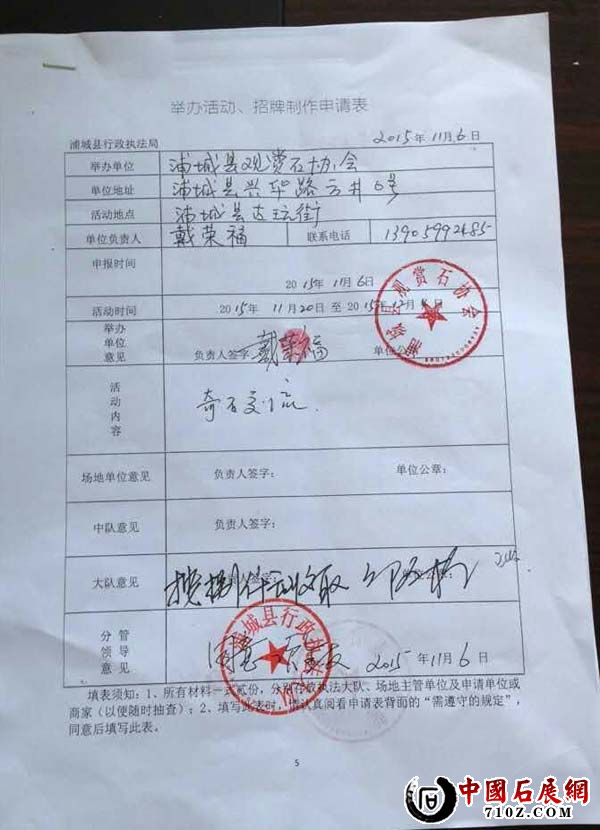 举办活动、招牌制作申请表
浦城县行政执法局 2015年11月6日
举办单位 浦城县观赏石协会
单位地址 浦城县兴华路三井6号
活动地点 浦城县达坛街
单位负责人 戴荣福 联系电话
申报时间 2015年11月6日
活动时间 2015年11月20日至2015年12月
举办单位意见 负责人签字 戴荣福 单位公章
浦城县观赏石协会
活动内容 奇石交流.
场地单位意见 负责人签字: 单位公章:
中队意见 负责人签字:
大队意见
分管领导意见 同意 2015年11月6日
城县行政执
填表须知:1、所有材料一式贰份,分别存放执法大队、场地主管单位及申请单位或
商家(以便随时抽查);2、填写此表时,请认真阅看申请表背面的“需遵守的规定”,
同意后填写此表。
5
中國石展網
7102.COM